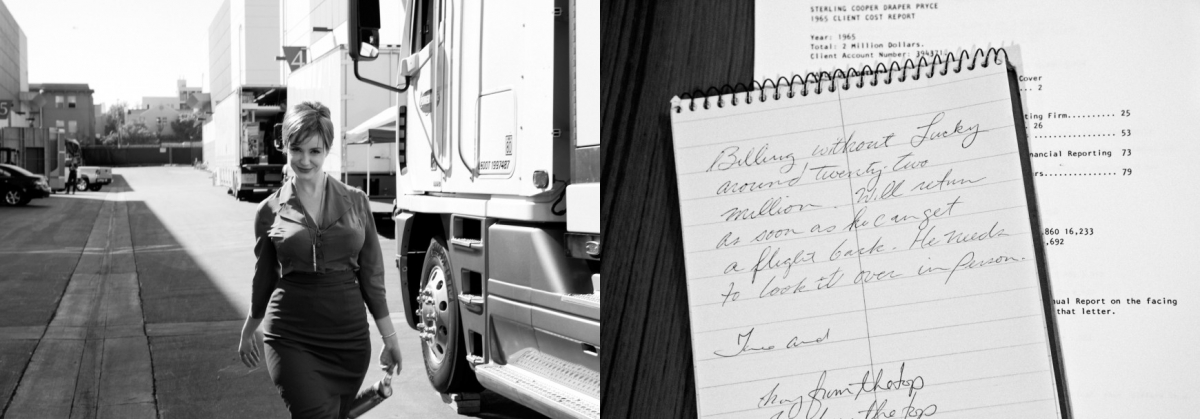 4
5
STERLING COOPER DRAPER PRYCE
1965 CLIENT COST REPORT
Year: 1965
Total: 2 Million Dollars.
Client Account Number:
Cover
.. 2
ting Firm.......... 25
. 26
.................. 53
nancial Reporting 73
rs................ 79
,860 16,233
,692
nual Report on the facing
that letter.
Billing without Lucky
around twenty-two
million. Will return
as soon as he can get
a flight back. He needs
to look it over in person.
from the top
the top